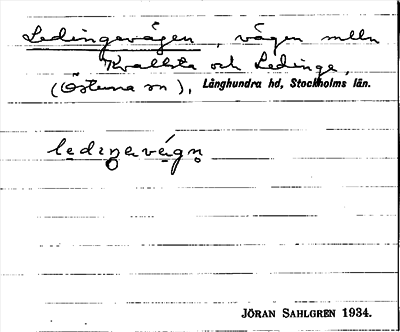 Ledingevägen, vägen mlln
Kvallsta och Ledinge,
(Östuna sn), Långhundra hd, Stockholms län.
ledıŋavägn̥
JÖRAN SAHLGREN 1934.